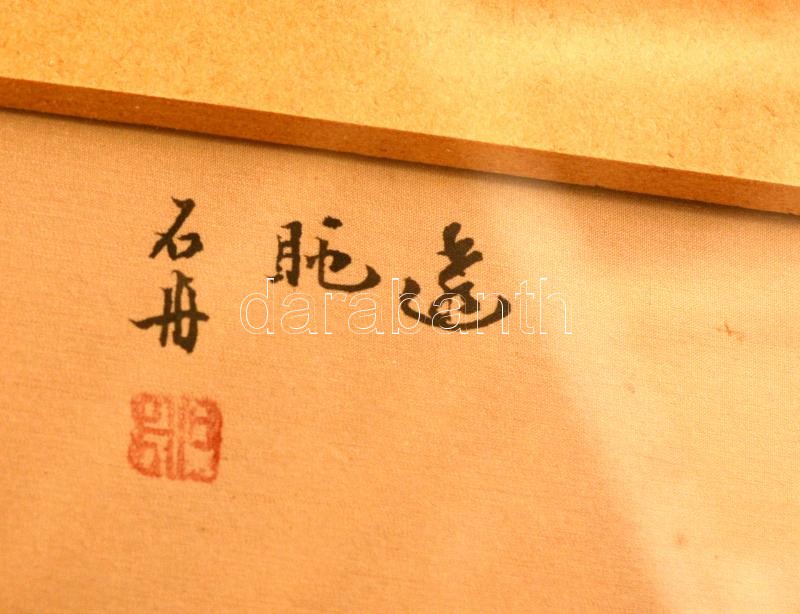 遠眺
石舟
darabanth